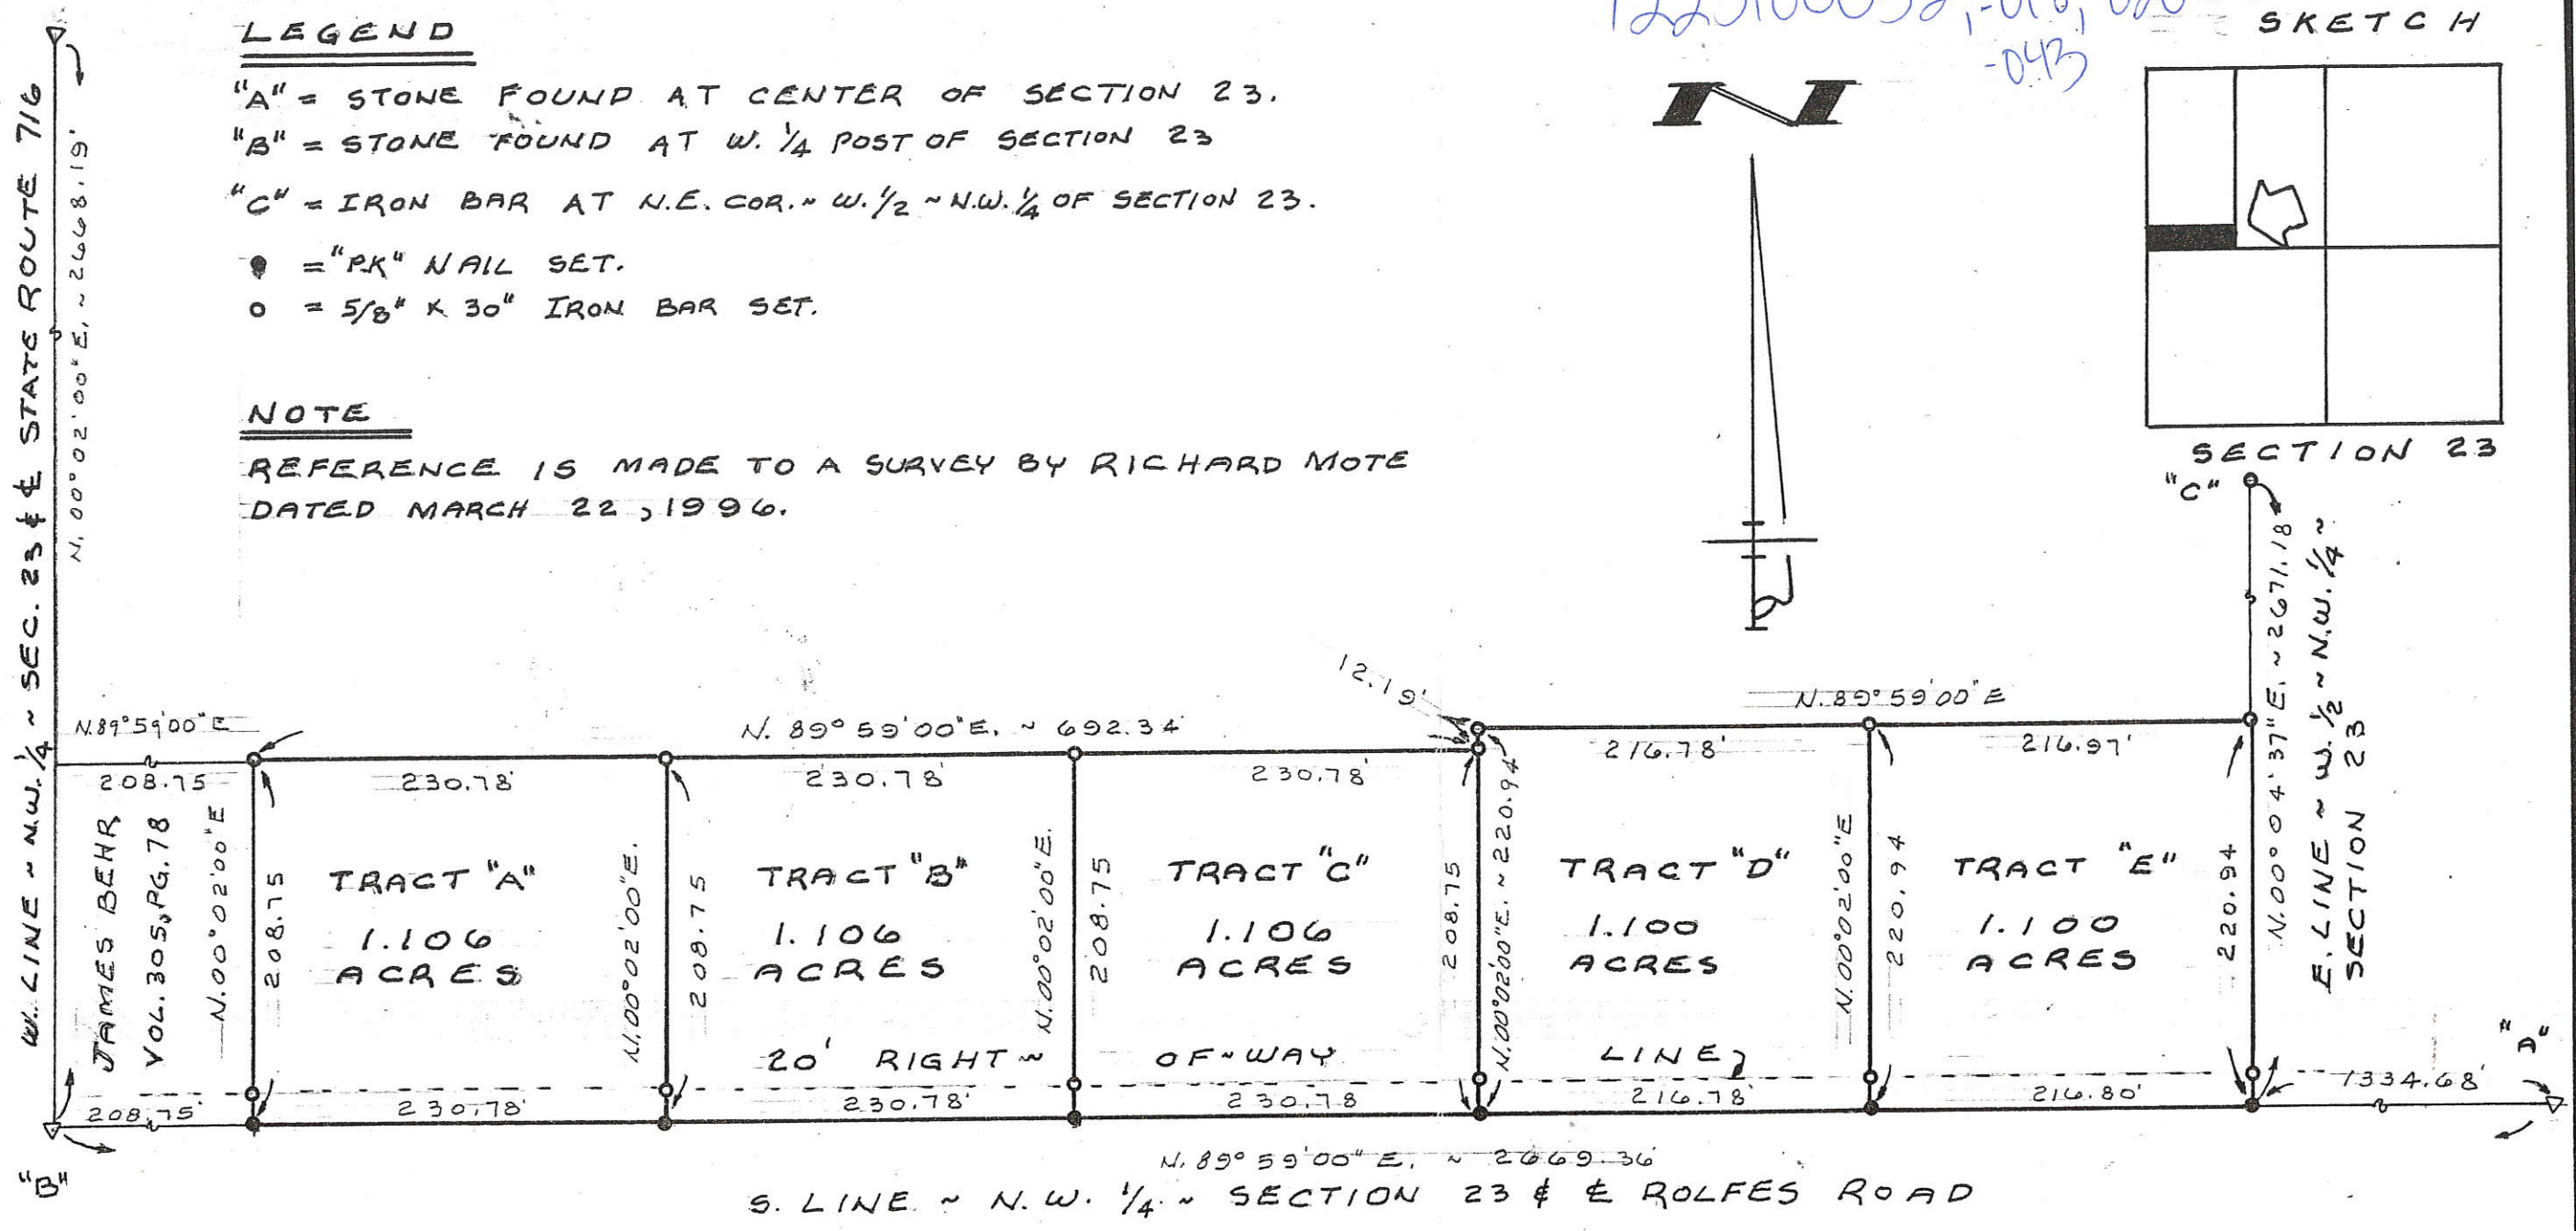 LEGEND
"A" = STONE FOUND AT CENTER OF SECTION 23.
"B" = STONE FOUND AT W. 1/4 POST OF SECTION 23
"C" = IRON BAR AT N.E. COR. ~ W. 1/2 ~ N.W. 1/4 OF SECTION 23.
● = "P.K" NAIL SET.
○ = 5/8" X 30" IRON BAR SET.
NOTE
REFERENCE IS MADE TO A SURVEY BY RICHARD MOTE
DATED MARCH 22, 1996.
-043
SKETCH
N
SECTION 23
"C"
W. LINE ~ N.W. 1/4 ~ SEC. 23 & ℄ STATE ROUTE 716
N. 00° 02' 00" E. ~ 2668.19'
N. 00° 04' 37" E. ~ 2671.18'
E. LINE ~ W. 1/2 ~ N.W. 1/4 ~
SECTION 23
N. 89° 59' 00" E
208.75
N. 89° 59' 00" E. ~ 692.34'
12.19'
N. 89° 59' 00" E
230.78'
230.78'
230.78'
216.78'
216.97'
JAMES BEHR
VOL. 305, PG. 78
N. 00° 02' 00" E
208.75
TRACT "A"
1.106
ACRES
N. 00° 02' 00" E.
208.75
TRACT "B"
1.106
ACRES
N. 00° 02' 00" E.
208.75
TRACT "C"
1.106
ACRES
208.75
N. 00° 02' 00" E. ~ 220.94
TRACT "D"
1.100
ACRES
N. 00° 02' 00" E
220.94
TRACT "E"
1.100
ACRES
220.94
20' RIGHT ~ OF ~ WAY LINE
208.75'
230.78'
230.78'
230.78
216.78'
216.80'
1334.68'
"B"
N. 89° 59' 00" E. ~ 2669.36'
S. LINE ~ N.W. 1/4 ~ SECTION 23 & ℄ ROLFES ROAD